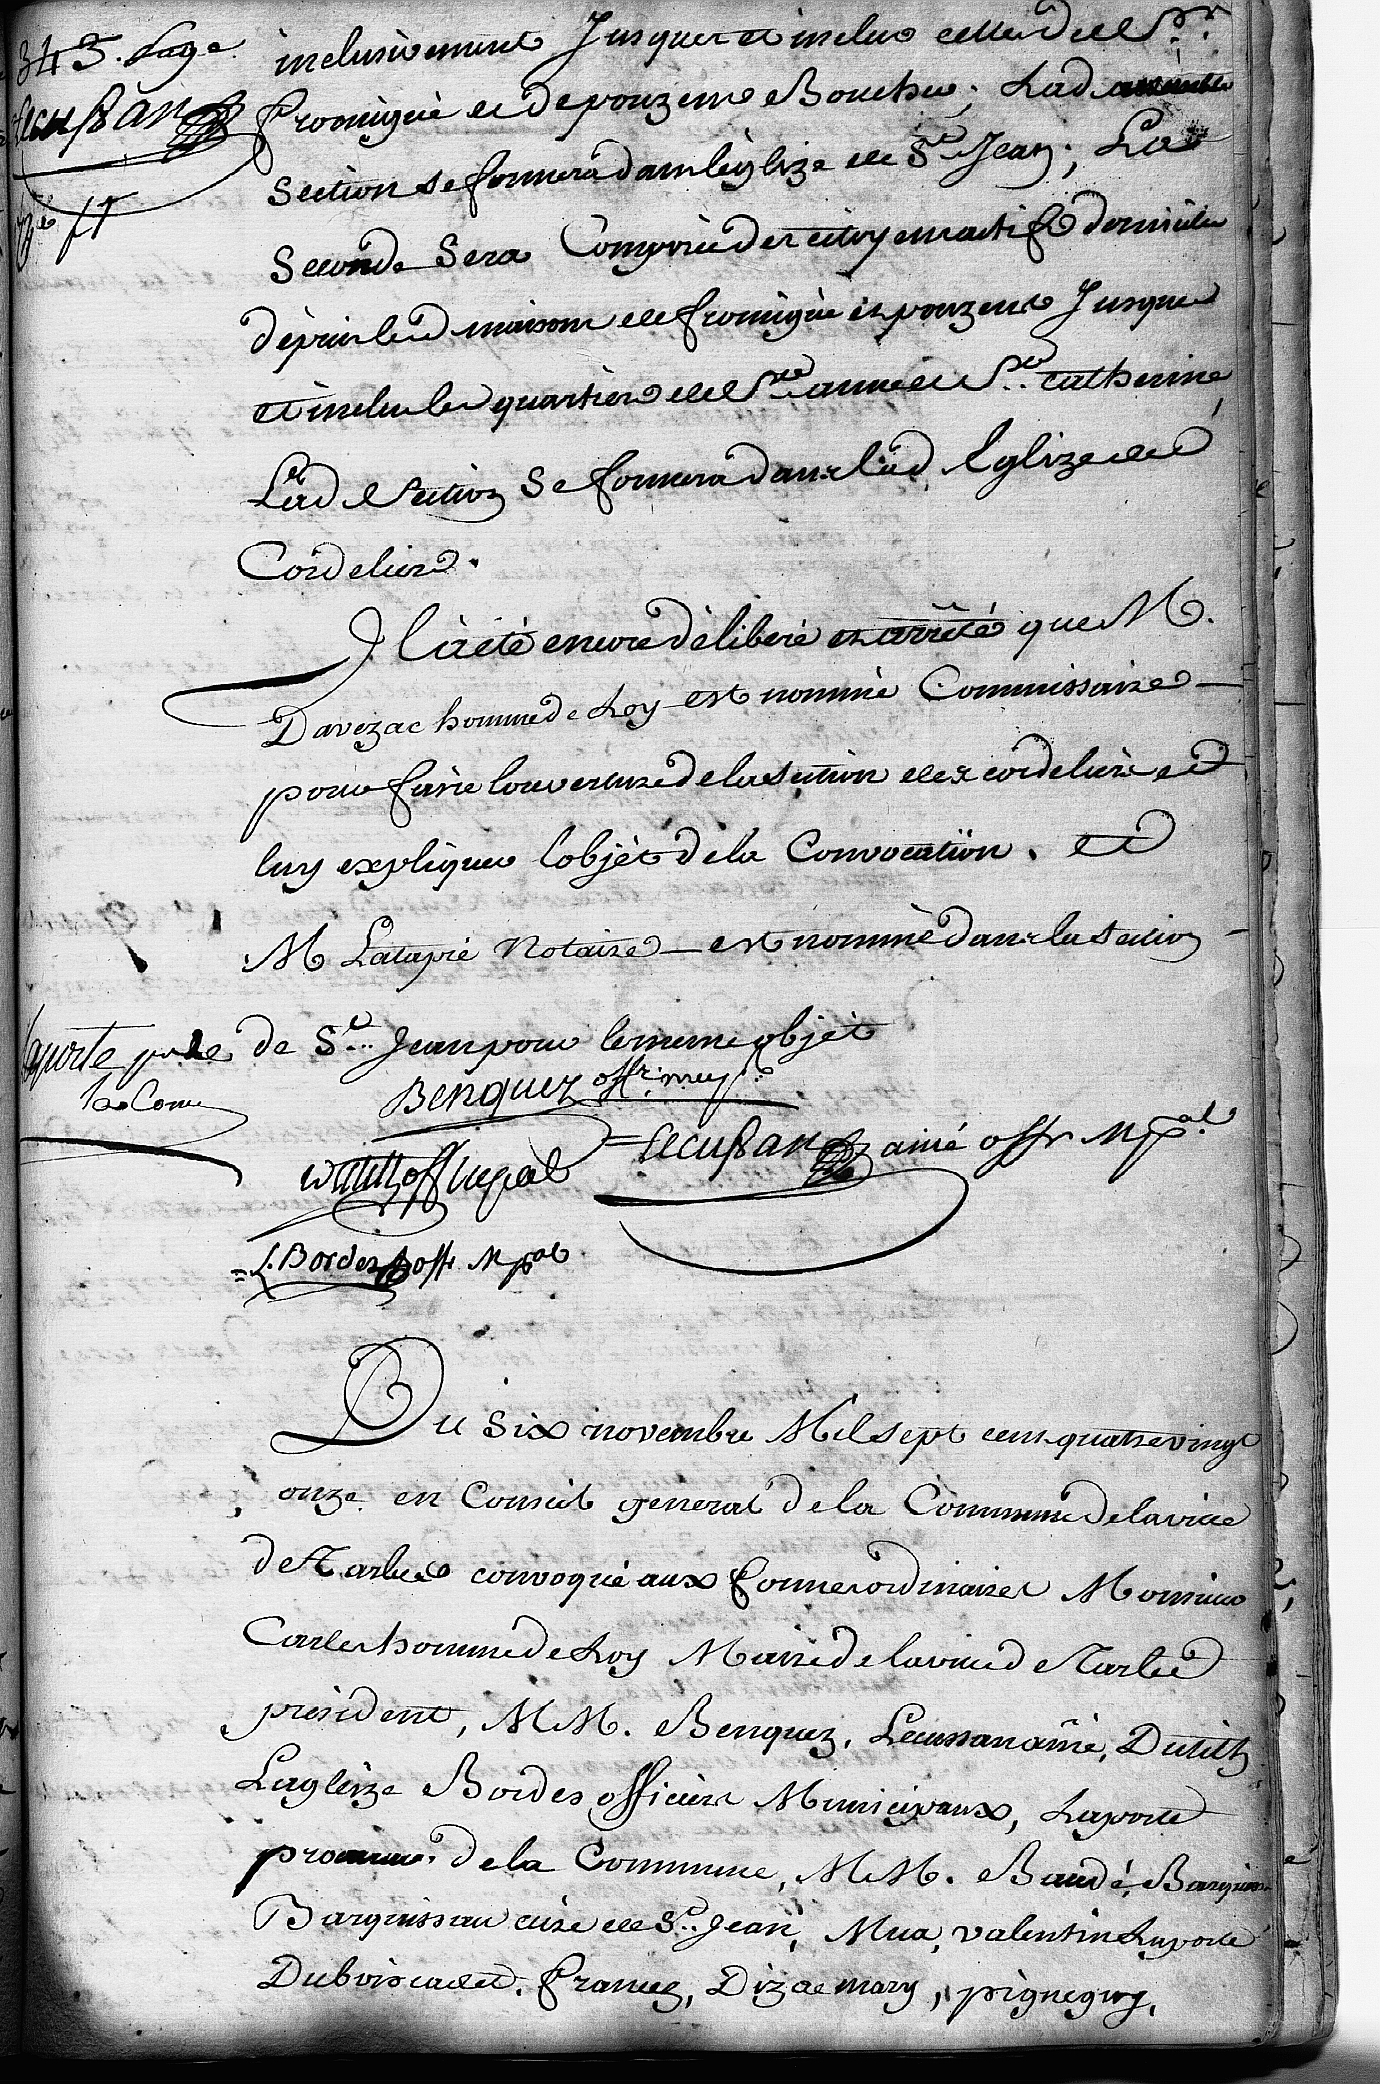 343. page
Lecussan
inclusivement Jusques et inclus celle de Sr.
fromigué et de pouzenc Bouchu; Lad
Section se formera dans l'églize de St Jean; La
Seconde Sera Comprise des citoyens actifs domiciliés
dépuis les d maisons de fromigué et pouzenc Jusques
et inclus les quartiers de Ste anne et Ste catherine
Lad Section Se formera dans lad Eglize des
Cordeliers.
Il à été encore déliberé et arrêté que M.
Davezac homme de Loy est nommé Commissaire
pour faire louverture de la Section des cordeliers et
luy expliquer lobjèt de la Convocation. et
M Latapié Notaire est nommé dans la Section
de St Jean pour le meme objèt
Laporte pr de
la Come
Benquez offr. mupl.
Dutilh off mupal
Lecussan ainé offr Mpal
J. Bordes offr. Mpal
Du Six novembre Mil sept cens quatre vingt
onze en Conseil general de la Commune de la ville
de Tarbes convoqué aux formes ordinaires Monsieur
Carles homme de Loy Maire de la ville de Tarbes
président, M M. Benquez, Lecussan aîné, Dutilh,
Lagleize Bordes officiers Municipaux, Laporte
procureur de la Commune, M M. Baudé,
Barguissau curé de St. Jean, Mua, valentin Laporte
Dubois cadet. francez, Dizac mary, pigneguy,